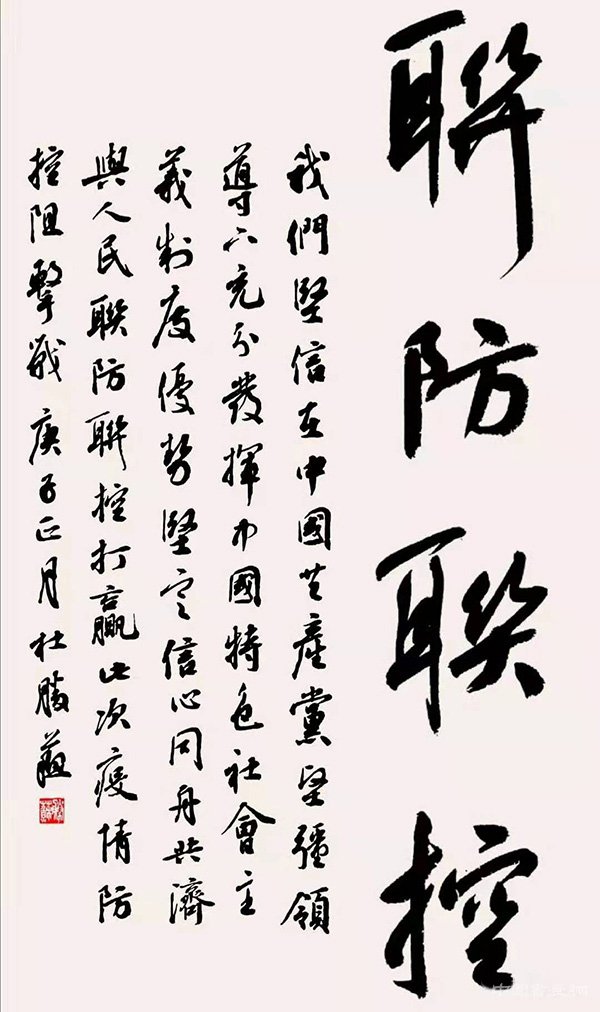 聯防聯控
我們堅信在中國共產黨堅彊領
導下充分發揮中國特色社會主
義制度優勢堅定信心同舟共濟
與人民聯防聯控打贏此次疫情防
控阻擊戰庚子正月杜勝